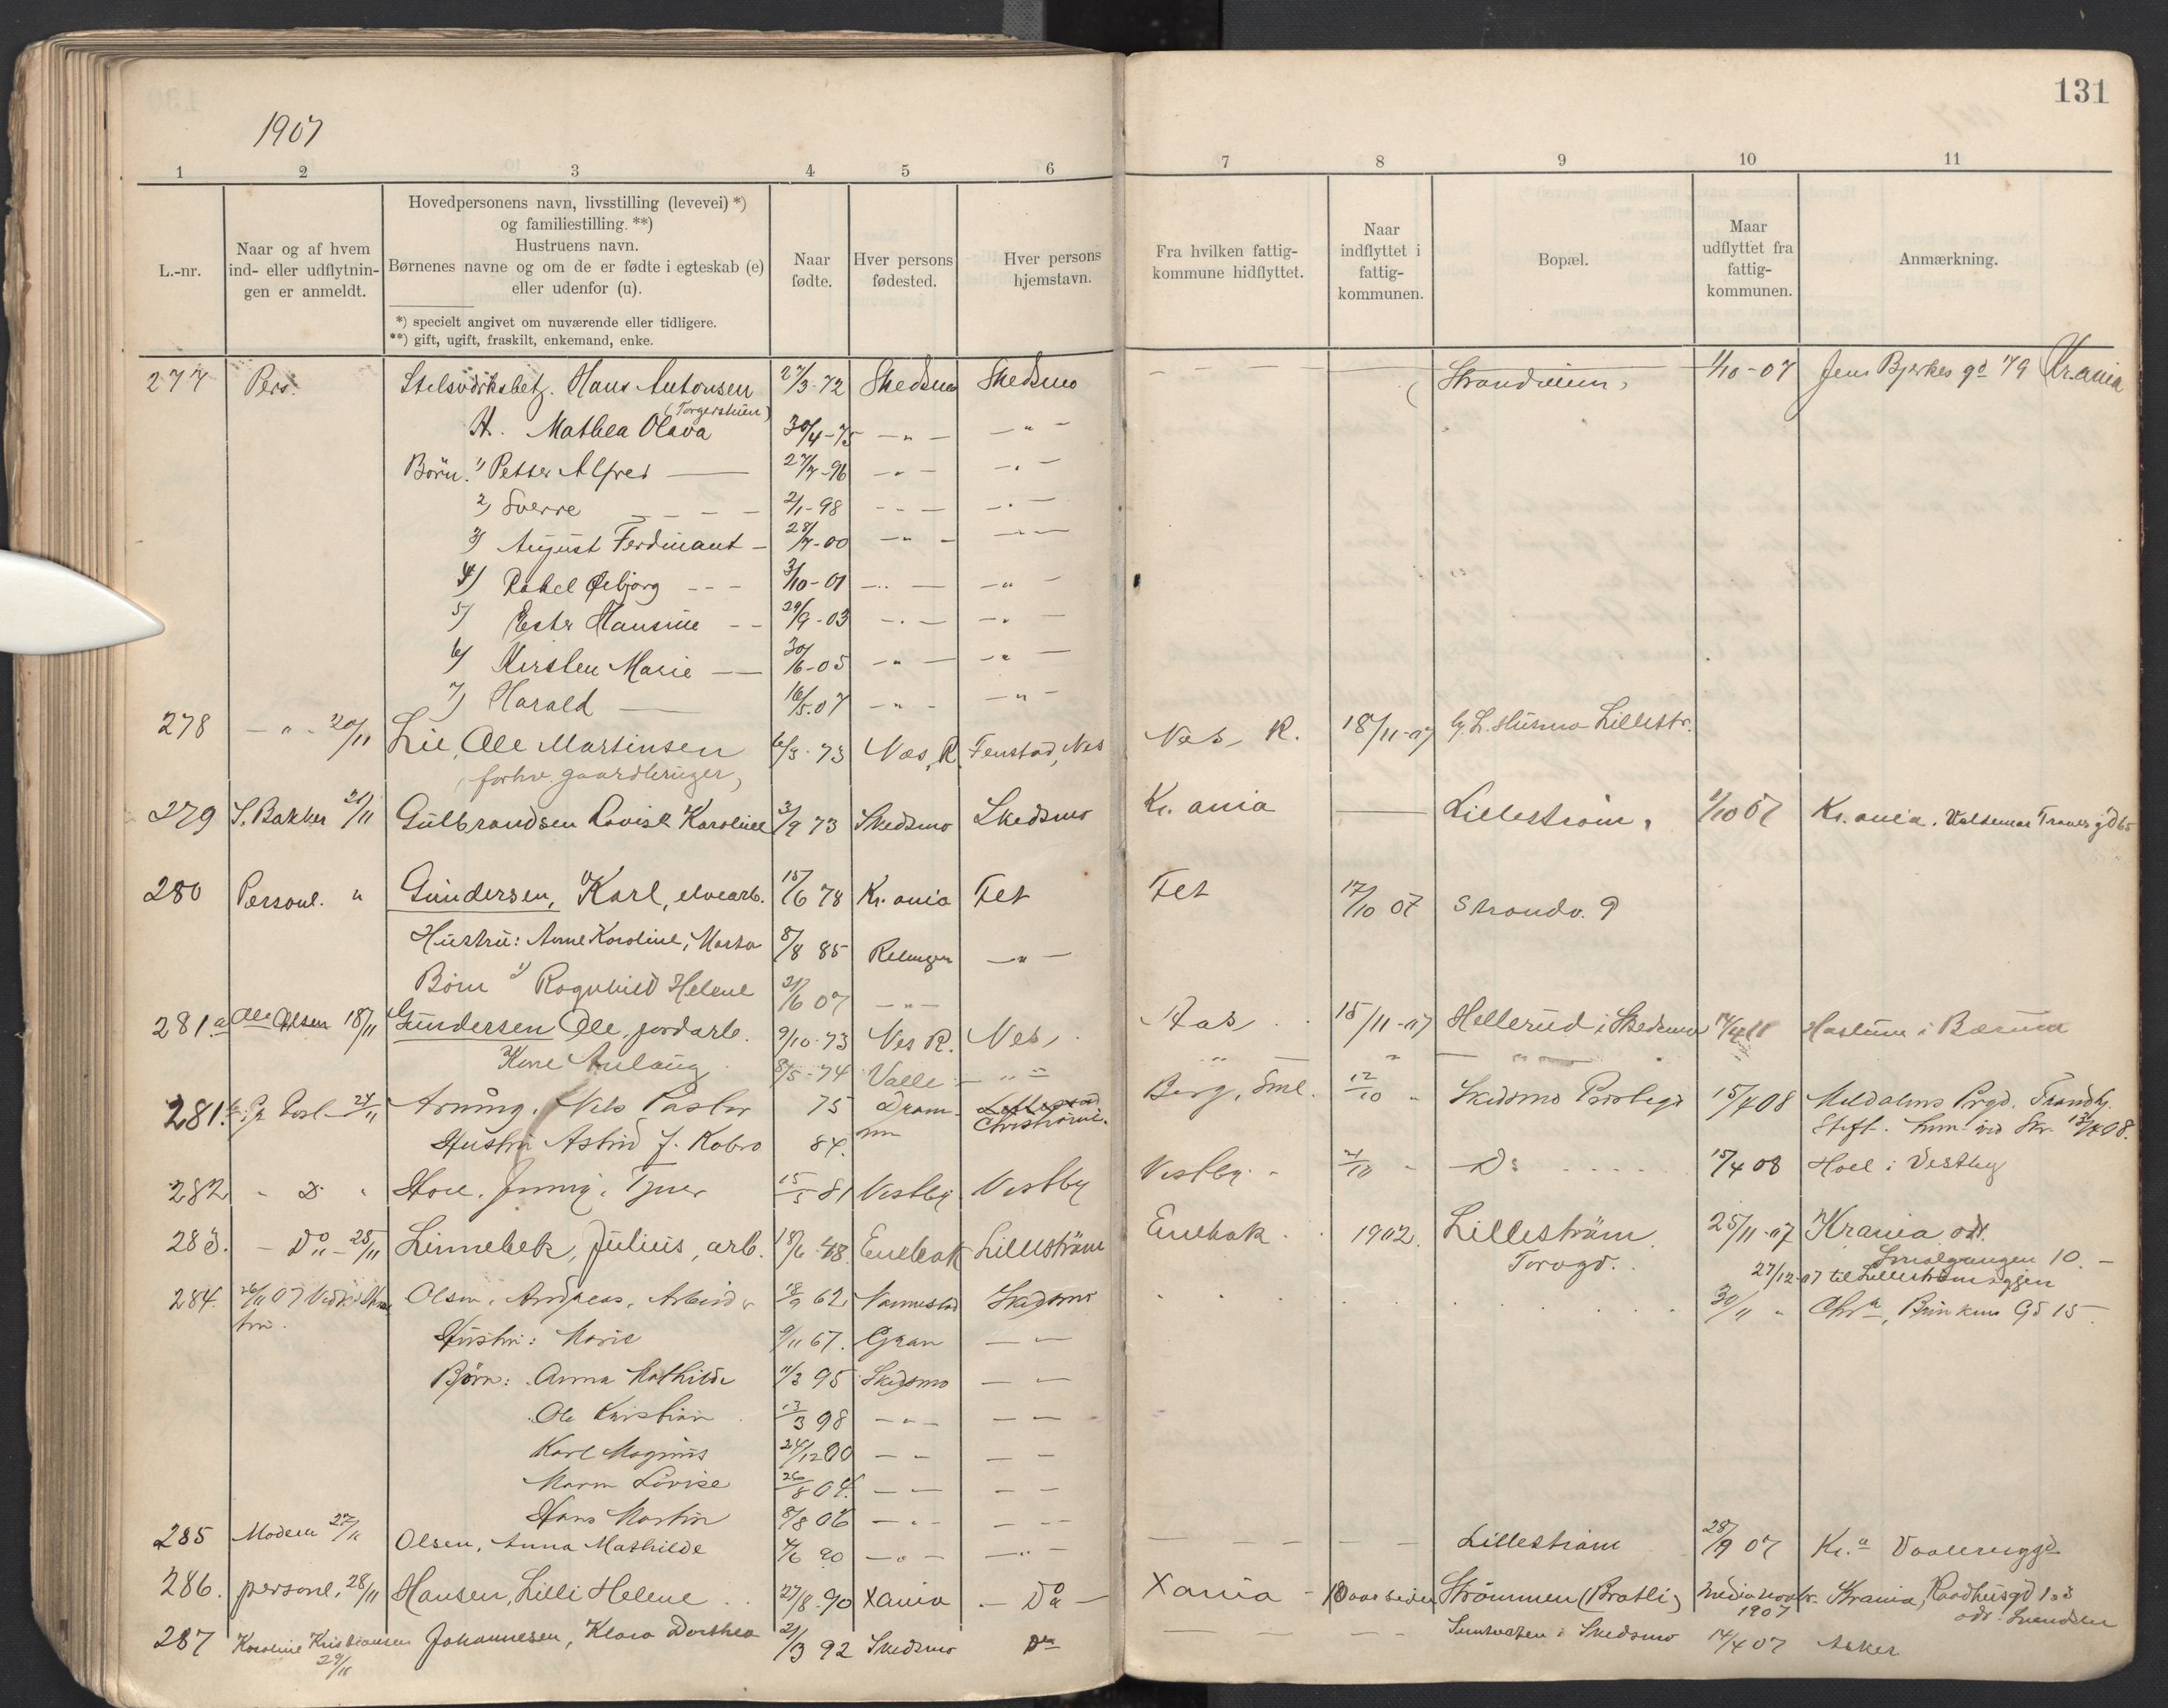 131
1907
1 2 3 4 5 6 7 8 9 10 11
L.-nr.
Naar og af hvem
ind- eller udflytnin-
gen er anmeldt.
Hovedpersonens navn, livsstilling (levevei) *)
og familiestilling. **)
Hustruens navn.
Børnenes navne og om de er fødte i egteskab (e)
eller udenfor (u).
*) specielt angivet om nuværende eller tidligere.
**) gift, ugift, fraskilt, enkemand, enke.
Naar
fødte.
Hver persons
fødested.
Hver persons
hjemstavn.
Fra hvilken fattig-
kommune hidflyttet.
Naar
indflyttet i
fattig-
kommunen.
Bopæl.
Maar
udflyttet fra
fattig-
kommunen.
Anmærkning.
277 Pers. Hans Antonsen 27/3-72 Skedsmo Skedsmo — — — 1/10-07 Jens Bjerkes gd 79 Kr.ania
H. Mathea Olava 30/4-75 — " — — " —
Børn. 1) Petter Alfred — 27/7-96 — " — — " —
2) Sverre — 2/1-98 — — — — " —
3) August Ferdinant — 28/7-00 — " — — " —
4) Rakel — 3/10-01 — " — — " —
5) Ester Hansine — 29/9-03 — " — — " —
6) Kirsten Marie — 30/6-05 — " — — " —
7) Harald — 16/5.07 — " — — " —
278 — " — 20/11 Lie, Ole Martinsen 6/3-73 Næs, R. Fenstad, Nes Næs, R. 18/11-07 Lillestr.
forhv. gaardbruger,
279 S. Bakker 21/11 Gulbrandsen Lovise Karoline 3/9 73 Skedsmo Skedsmo Kr. ania — Lillestrøm, 1/10 07 Kr. ania. Valdemar Tranes gd 65
280 Personl. " Gundersen, Karl, elvearb. 15/6 78 Kr. ania Fet Fet 17/10 07 Strandv. 9
Hustru: Anne Karoline, Marta 8/8 85 Relingen — " —
Børn 1) Ragnhild Helene 21/6 07 — " —
281.a Ole Olsen 18/11 Gundersen Ole, jordarb. 9/10-73 Nes R. Nes, Aas 15/11-07 Hellerud i Skedsmo Haslum i Bærum
Kone Anlaug 8/5-74 Valle — " — " — " — " —
281.b Post 24/11 Arning, Nils Pastor 75 Dram- Berg, Sml. 12/10 " Skedsmo 15/4 08 Meldalens Prgd. Trondhj.
Hustru Astrid J. Kobro 84. men Christiania. Stift. 13/4 08.
282 " D " Hoel, Jenny, Tjener 15/5 81 Vestby Vestby Vestby " 21/10 " Do 15/4 08 Hoel i Vestby
283. — Do — 25/11 Linnebek, Julius, arb. 18/6-48. Enebak Lillestrøm Enebak 1902 Lillestrøm 25/11-07 Krania adr.
Torvgd. Smalgangen 10. —
27/12-07 til Lillestrøm igjen
284. 26/11 07 Olsen, Andreas, Arbeider 18/9 62 Nannestad Skedsmo 30/11 " Chra, Brinkens Gd 15
Hustru: Marie 9/11 67. Gran — —
Børn: Anna Mathilde 11/3 95 Skedsmo — —
Ole Kristian 13/3 98 — " — — —
Karl Magnus 24/12 00 — — — —
Lovise 26/8 04. — — — —
Hans Martin 8/8 06 — " — — —
285 Moderen 27/11 Olsen, Anna Mathilde 4/6 90 — " — — " — — — — Lillestrøm 28/9 07 Kr.a Vaalerenggd
286. personl. 28/11 Hansen, Lilli Helene 27/8-90 Xania — Do — Xania — Strømmen (Bratli) medio novbr. Krania, Raadhusgd
1907 adr. Svendsen
287 Karoline Kristiansen Johannesen, Klara Dorthea 21/3 92 Skedsmo Do — — — i Skedsmo 14/4 07 Asker
29/11